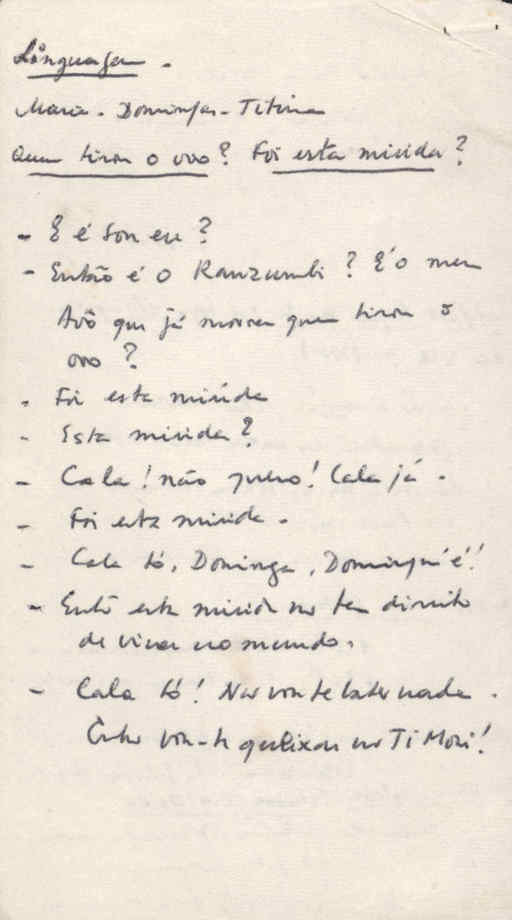 Linguagem -
Maria - Domingas - Titina
Quem tirou o ovo? Foi esta miúda?
- E é sou eu?
- Então é o Kanzumbi? É o meu
Avô que já morreu quem tirou o
ovo?
- Foi esta miúda
- Esta miúda?
- Cala! não quero! Cala já.
- Foi esta miúda.
- Cala tó, Dominga, Domingu'é!
- Entõ esta miúda no tem direito
de viver no mundo.
- Cala tó! Nor vou te bater nada.
vou-te queixar no Ti Moni!